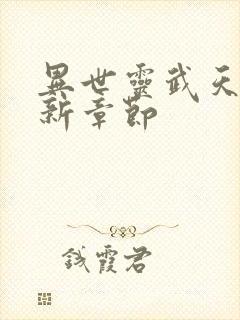 異世靈武天
新章節
錢霞君